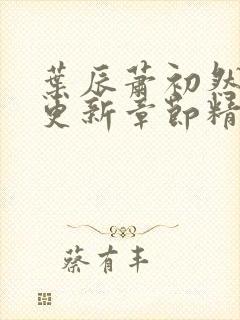 葉辰蕭初然
更新章節精
蔡有丰